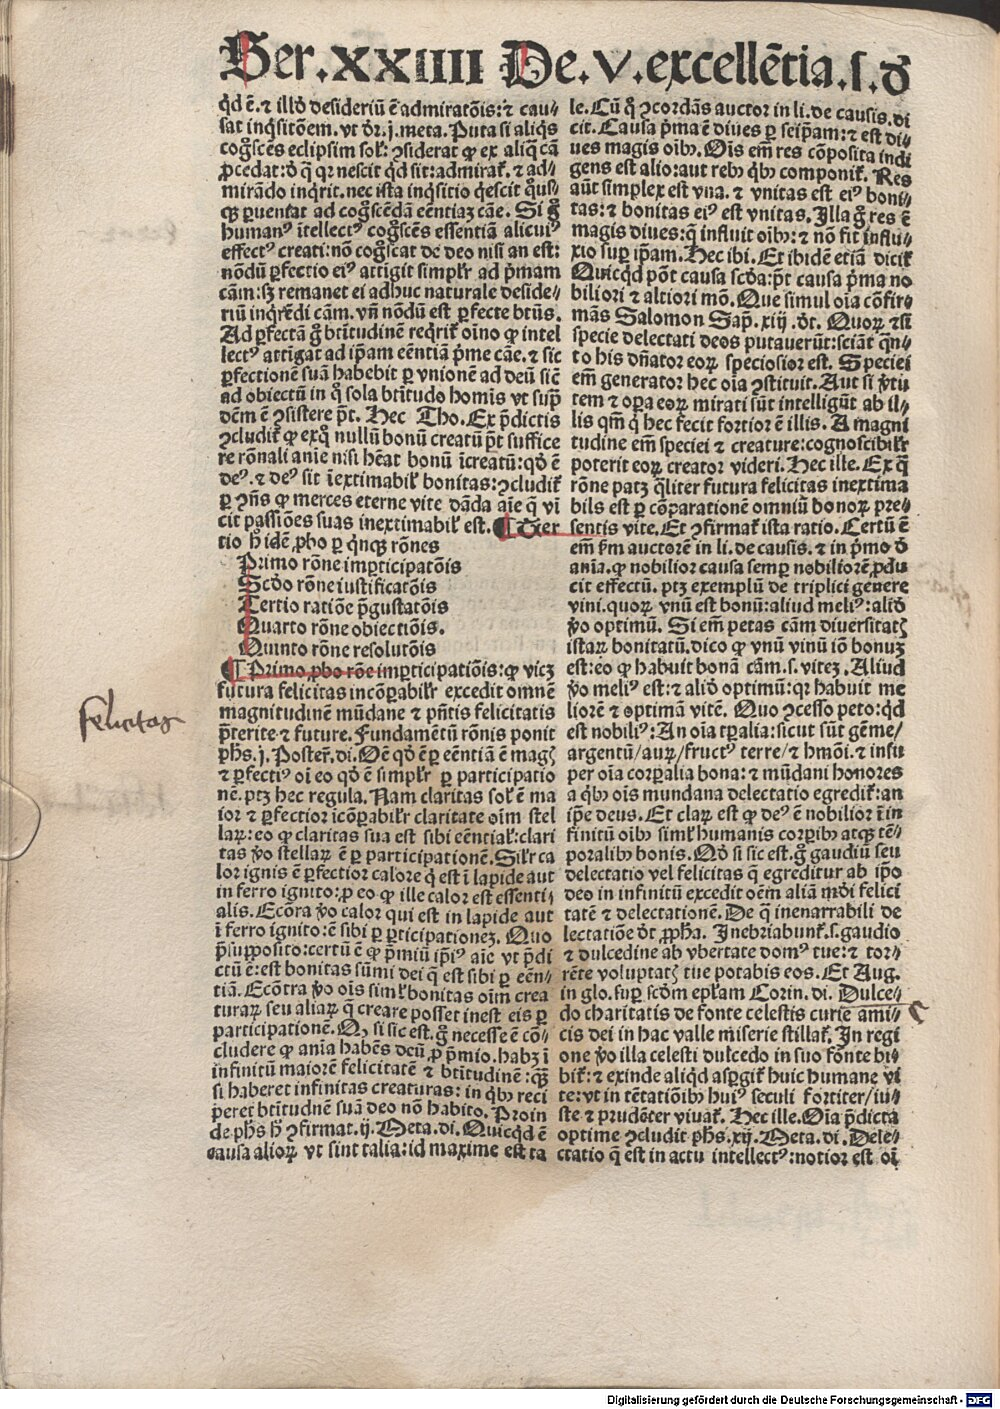 Ser.XXIIII De.V.excellētia.s.đ
q̇d ē.⁊ illđ desideriū ē admiratōis:⁊ cau⸗
sat inq̇sitōem.vt dr̄.j.meta.Puta si aliq̇s
cog̊scēs eclipsim sol̕:ꝯsiderat ꝙ ex aliq̄ cā
ꝓcedat:đ q̄ qꝛ nescit q̇d sit:admirat̕.⁊ ad⸗
mirādo inq̇rit.nec ista inq̇sitio q̇escit q̊us⸗
qꝫ ꝑueniat ad cog̊scēdā eēntiaꝫ cāe. Si g̊
humanꝰ ītellectꝰ cog̊scēs essentiā alicuiꝰ
effectꝰ creati:nō cog̊scat de deo nisi an est:
nōdū ꝑfectio eiꝰ attigit simplr̄ ad p̄mam
cām:sꝫ remanet ei adhuc naturale deside⸗
riū inq̇rēdi cām.vn̄ nōdū est ꝑfecte btūs.
Ad ꝑfectā g̊ btītudinē req̇rit̕ oīno ꝙ intel
lectꝰ attigat ad ip̄am eēntiā p̄me cāe.⁊ sic
ꝑfectionē suā habebit ꝑ vnionē ad deū sic̄
ad obiectū in q̊ sola btītudo homīs vt sup̄
dc̄m ē ꝯsistere pōt. Hec Tho.Ex p̄dictis
ꝯcludit̕ ꝙ exq̊ nullū bonū creatū pōt suffice
re rōnali anīe nisi hēat bonū īcreatū:qđ ē
deꝰ.⁊ deꝰ sit īextimabil̕ bonitas:ꝯcludit̕
ꝑ ꝯn̄s ꝙ merces eterne vite dāda aīe q̄ vī
cit passiōes suas inextimabil̕ est.¶Uer
tio h̄ idē ꝓbo ꝑ q̇nqꝫ rōnes
Primo rōne imꝑticipatōis
Scđo rōne iustificatōis
Tertio ratiōe p̄gustatōis
Quarto rōne obiectiōis.
Quinto rōne resolutōis
¶Primo ꝓbo rōe imꝑticipatiōis:ꝙ vicꝫ
futura felicitas incōꝑabilr̄ excedit omnē
magnitudinē mūdane ⁊ pn̄tis felicitatis
p̄terite ⁊ future.Fundamētū rōnis ponit
ph̄s.j.Poster̄.di.Oē qđ ē ꝑ eēntiā ē magꝭ
⁊ ꝑfectiꝰ oī eo qđ ē simplr̄ ꝑ participatio
nē.ptꝫ hec regula.Nam claritas sol̕ ē ma
ior ⁊ ꝑfectior īcōꝑabilr̄ claritate oīm stel
laꝝ:eo ꝙ claritas sua est sibi eēntial̕:clari
tas v̊o stellaꝝ ē ꝑ participationē.Silr̄ ca
lor ignis ē ꝑfectior calore q̇ est ī lapide aut
in ferro ignito:ꝓ eo ꝙ ille calor est essenti⸗
alis.Ecōra v̊o calor qui est in lapide aut
ī ferro ignito:ē sibi ꝑ ꝑticipationeꝫ. Quo
p̄supposito:certū ē ꝙ p̄miū ip̄iꝰ aīe vt p̄di
ctū ē:est bonitas sūmi dei q̄ est sibi ꝑ eēn⸗
tiā. Ecōtra v̊o oīs simil̕ bonitas oīm crea
turaꝝ seu aliaꝝ q̄ creare posset inest eis ꝑ
participationē.Qꝫ si sic est.g̊ necesse ē cō⸗
cludere ꝙ anīa habēs deū ꝓ p̄mio.habꝫ ī
infinitū maiorē felicitatē ⁊ btītudinē:q̄ꝫ
si haberet infinitas creaturas: in q̇bꝰ reci
peret btītudinē suā deo nō habito. Proin
de ph̄s h̄ ꝯfirmat.ij.Meta.di.Quicq̇d ē
causa alioꝝ vt sint talia:id maxime est ta
le.Cū q̊ ꝯcordās auctor in li.de causis.di
cit.Causa p̄ma ē diues ꝑ seip̄am:⁊ est di⸗
ues magis oībꝰ.Oīs em̄ res cōposita indi
gens est alio:aut rebꝰ q̇bꝰ componit̕. Res
aūt simplex est vna.⁊ vnitas est eiꝰ boni⸗
tas:⁊ bonitas eiꝰ est vnitas.Illa g̊ res ē
magis diues:q̄ influit oībꝰ:⁊ nō fit influ⸗
xio sup̄ ip̄am.Hec ibi.Et ibidē etiā dicit̕
Quicq̇d pōt causa scđa:pōt causa p̄ma no
biliori ⁊ altiori mō.Que simul oīa cōfir⸗
mās Salomon Sap̄.xiij.dt̄. Quoꝝ ⁊si
specie delectati deos putauerūt:sciāt q̄n⸗
to his dn̄ator eoꝝ speciosior est. Speciei
em̄ generator hec oīa ꝯstituit.Aut si v̊tu
tem ⁊ oꝑa eoꝝ mirati sūt intelligūt ab il⸗
lis qm̄ q̇ hec fecit fortior ē illis. A magni
tudine em̄ speciei ⁊ creature:cognoscibilr̄
poterit eoꝝ creator videri.Hec ille. Ex q̄
rōne patꝫ q̄liter futura felicitas inextima
bils est ꝑ cōparationē omniū bonoꝝ pre⸗
sentis vite.Et ꝯfirmat̕ ista ratio.Certū ē
em̄ fm̄ auctorē in li.de causis.⁊ in p̄mo đ
anīa.ꝙ nobilior causa semꝑ nobiliorē ꝓdu
cit effectū. ptꝫ exemplū de triplici genere
vini.quoꝝ vnū est bonū:aliud meliꝰ:aliđ
v̊o optimū. Si em̄ petas cām diuersitatꝭ
istaꝝ bonitatū.dico ꝙ vnū vinū iō bonuꝫ
est:eo ꝙ habuit bonā cām.s.viteꝫ.Aliud
v̊o meliꝰ est:⁊ aliđ optimū:qꝛ habuit me
liorē ⁊ optimā vitē. Quo ꝯcesso peto:q̇d
est nobiliꝰ:An oīa tꝑalia:sicut sūt gēme/
argentū/auꝝ/fructꝰ terre/⁊ hmōi.⁊ insu
per oīa corꝑalia bona:⁊ mūdani honores
a q̇bꝰ oīs mundana delectatio egredit̕:an
ip̄e deus.Et claꝝ est ꝙ deꝰ ē nobilior ī in
finitū oībꝰ siml̕ humanis corꝑibꝰ atqꝫ tē⸗
poralibꝰ bonis. Qđ si sic est.g̊ gaudiū seu
delectatio vel felicitas q̄ egreditur ab ip̄o
deo in infinitū excedit oēm aliā mđi felici
tatē ⁊ delectationē.De q̄ inenarrabili de
lectatiōe dt̄.ꝓph̄a. Inebriabunt̕.s.gaudio
⁊ dulcedine ab vbertate domꝰ tue:⁊ tor⸗
rēte voluptatꝭ tue potabis eos.Et Aug.
in glo.suꝑ scđm epl̄am Corin.di. Dulce⸗
do charitatis de fonte celestis curie ami⸗
cis dei in hac valle miserie stillat̕.In regi
one v̊o illa celesti dulcedo in suo fonte bi⸗
bit̕:⁊ exinde aliq̇d asꝑgit̕ huic humane vi
te:vt in tētatiōibꝰ huiꝰ seculi fortiter/iu⸗
ste ⁊ prudēter viuat̕. Hec ille.Oīa p̄dicta
optime ꝯcludit ph̄s.xij.Meta.di.Dele⸗
ctatio q̄ est in actu intellectꝰ:notior est oī
felicitas
Digitalisierung gefördert durch die Deutsche Forschungsgemeinschaft - DFG